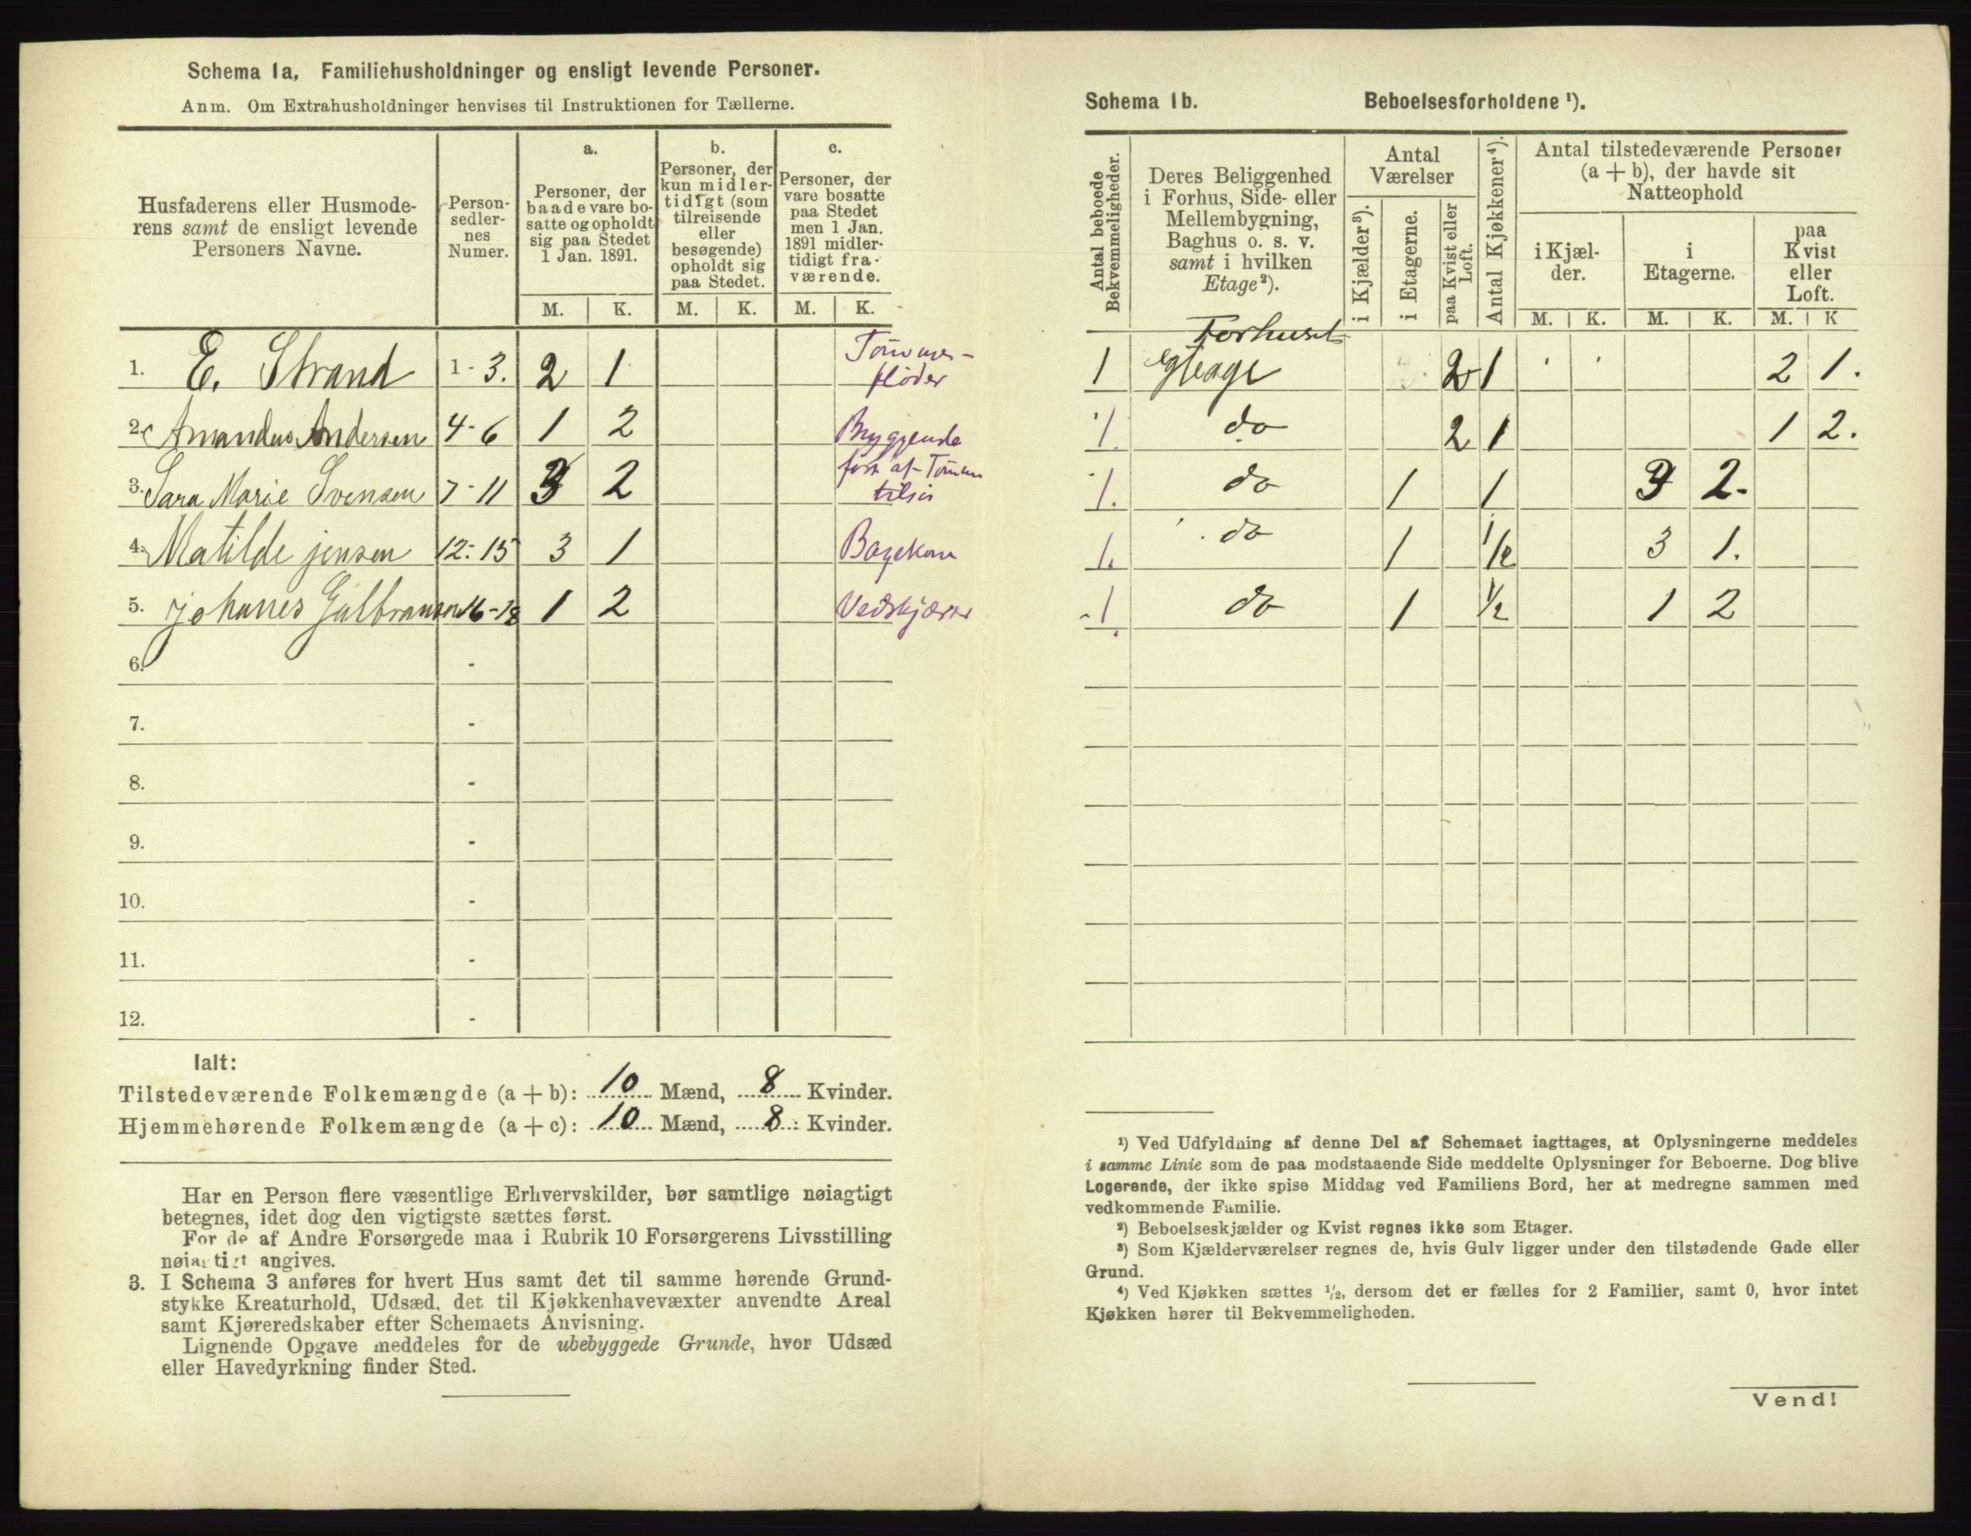 Schema 1a, Familiehusholdninger og ensligt levende Personer.
Anm. Om Extrahusholdninger henvises til Instruktionen for Tællerne.
Husfaderens eller Husmode-
rens samt de ensligt levende
Personers Navne.
Person-
sedler-
nes
Numer.
a.
Personer, der
baade vare bo-
satte og opholdt
sig paa Stedet
1 Jan. 1891.
b.
Personer, der
kun midler-
tidigt (som
tilreisende
eller
besøgende)
opholdt sig
paa Stedet.
c.
Personer, der
vare bosatte
paa Stedet
men 1 Jan.
1891 midler-
tidigt fra-
værende.
M. K. M. K. M. K.
1. E. Strand 1-3. 2 1 Tømmer-
fløder
2. Amandus Andersen 4-6 1 2 Bryggende
3. Sara Marie Svensen 7-11 3 2
4. Matilde jensen 12-15 3 1 Bagekone
5. johanes Gulbransen 16-18 1 2 Vedskjærer
6. -
7. -
8. -
9. -
10. -
11. -
12. -
Ialt:
Tilstedeværende Folkemængde (a + b): 10 Mænd, 8 Kvinder.
Hjemmehørende Folkemængde (a + c): 10 Mænd, 8 Kvinder.
Har en Person flere væsentlige Erhvervskilder, bør samtlige nøiagtigt
betegnes, idet dog den vigtigste sættes først.
For de af Andre Forsørgede maa i Rubrik 10 Forsørgerens Livsstilling
nøiagtigt angives.
3. I Schema 3 anføres for hvert Hus samt det til samme hørende Grund-
stykke Kreaturhold, Udsæd, det til Kjøkkenhavevæxter anvendte Areal
samt Kjøreredskaber efter Schemaets Anvisning.
Lignende Opgave meddeles for de ubebyggede Grunde, hvor Udsæd
eller Havedyrkning finder Sted.
Schema 1b. Beboelsesforholdene ¹).
Antal beboede
Bekvemmeligheder.
Deres Beliggenhed
i Forhus, Side- eller
Mellembygning,
Baghus o. s. v.
samt i hvilken
Etage²).
Antal
Værelser
i Kjælder³).
i Etagerne.
paa Kvist eller
Loft.
Antal Kjøkkener⁴).
Antal tilstedeværende Personer
(a + b), der havde sit
Natteophold
i Kjæl-
der.
i
Etagerne.
paa
Kvist
eller
Loft.
M. K. M. K. M. K
Forhuset
1 Etage 2 1 2 1.
1. do 2 1 1 2.
1. do 1 1 3 2.
1. do 1 1/2 3 1.
1. do 1 1/2 1 2
¹) Ved Udfyldning af denne Del af Schemaet iagttages, at Oplysningerne meddeles
i samme Linie som de paa modstaaende Side meddelte Oplysninger for Beboerne. Dog blive
Logerende, der ikke spise Middag ved Familiens Bord, her at medregne sammen med
vedkommende Familie.
²) Beboelseskjælder og Kvist regnes ikke som Etager.
³) Som Kjælderværelser regnes de, hvis Gulv ligger under den tilstødende Gade eller
Grund.
⁴) Ved Kjøkken sættes ½, dersom det er fælles for 2 Familier, samt 0, hvor intet
Kjøkken hører til Bekvemmeligheden.
Vend!